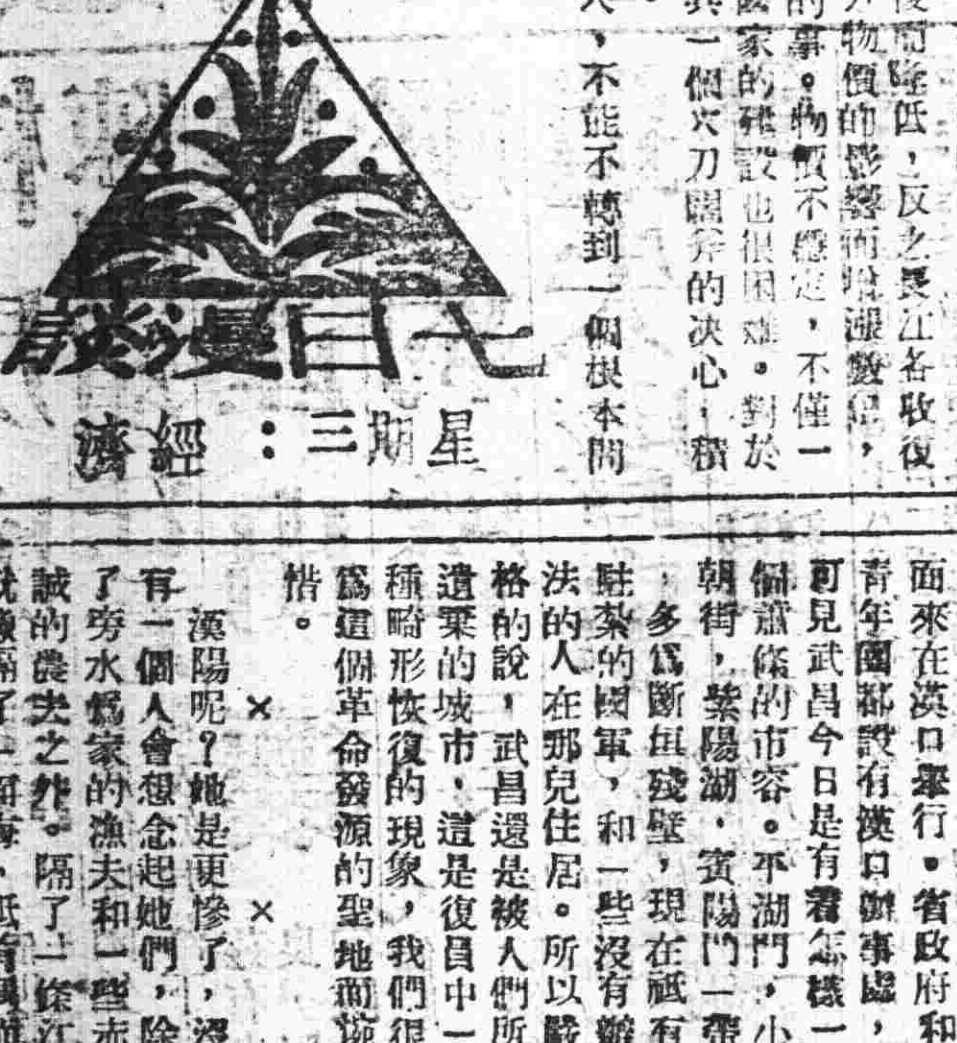 復
而降低，反之長江各收復
物價的影響而
的事。物價不穩定，不僅一
國家的建設也很困難。對於
一個大刀闊斧的决心，積
，不能不轉到一個根本問
七日漫談
星期三：經濟
面來在漢口舉行。省政府和
青年團都設有漢口辦事處，
可見武昌今日是有着怎樣一
個蕭條的市容。平湖門，小
朝街，紫陽湖，賓陽門一帶
，多爲斷垣殘壁，現在祇有
駐紮的國軍，和一些沒有辦
法的人在那兒住居。所以嚴
格的說，武昌還是被人們所
遺棄的城市，這是復員中一
種畸形恢復的現象，我們很
爲這個革命發源的聖地而
惜。
×　×
漢陽呢？她是更慘了，沒
有一個人會想念起她們，除
了旁水爲家的漁夫和一些
誠的農夫之外。隔了一條江
隔了一